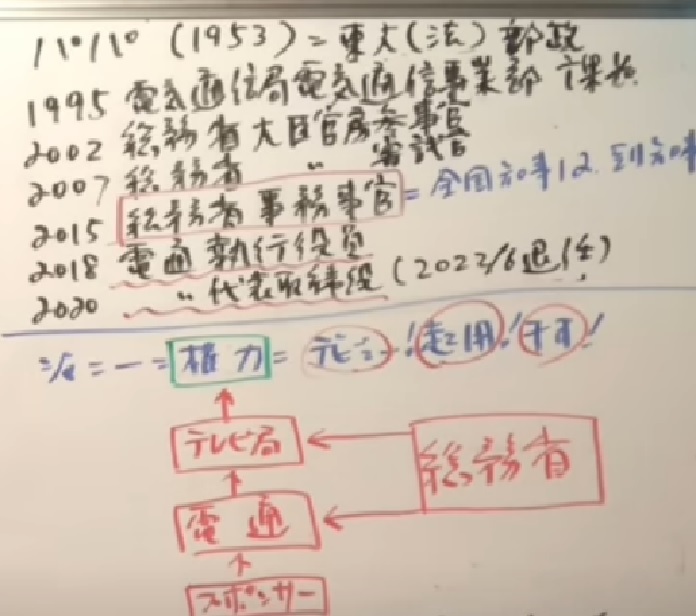 パパ (1953) = 東大(法) 郵政
1995 電気通信局電気通信事業部 課長
2002 総務省大臣官房参事官
2007 総務省 〃 審議官
2015 総務省事務次官 = 全国知事12.
2018 電通 執行役員
2020 〃 代表取締役 (2022/6退任)
= 権力 = デビュー! 起用!
テレビ局
総務省
電通
スポンサー